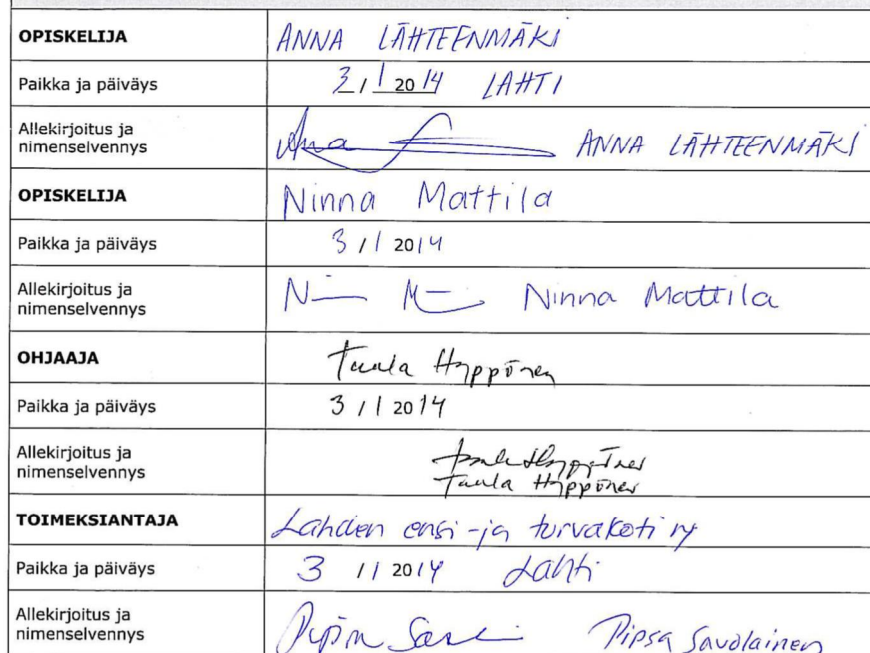 OPISKELIJA ANNA LÄHTEENMÄKI
Paikka ja päiväys 3 / 1 2014 LAHTI
Allekirjoitus ja
nimenselvennys Anna ANNA LÄHTEENMÄKI
OPISKELIJA Ninna Mattila
Paikka ja päiväys 3 / 1 2014
Allekirjoitus ja
nimenselvennys N M Ninna Mattila
OHJAAJA Tuula Hyppönen
Paikka ja päiväys 3 / 1 2014
Allekirjoitus ja
nimenselvennys Tuula Hyppönen
Tuula Hyppönen
TOIMEKSIANTAJA Lahden ensi-ja turvakoti ry
Paikka ja päiväys 3 / 1 2014 Lahti
Allekirjoitus ja
nimenselvennys Pipsa Savolainen